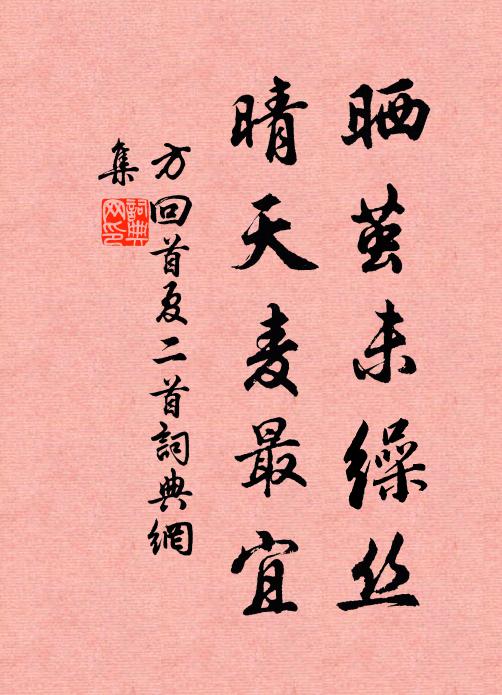 晒茧未缲丝
晴天麦最宜
方回首夏二首詞典網
集
詞典網印